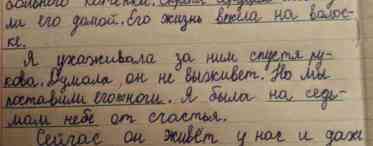 больного котёнка.
ли его домой. Его жизнь висела на волос-
ке.
Я ухаживала за ним спустя ру-
кова. Думала, он не выживет. Но мы
поставили его на ноги. Я была на седь-
мом небе от счастья.
Сейчас он живёт у нас и даж